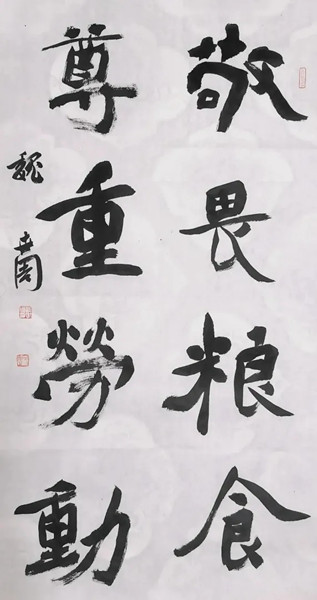 敬畏粮食
尊重勞動
魏